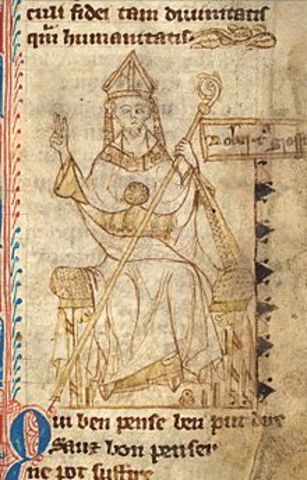 culi fidei tam divinitatis
qui humanitatis.
Rob't' gross
Qui ben pense ben put dire
Sanz bon penser
ne pot suffire